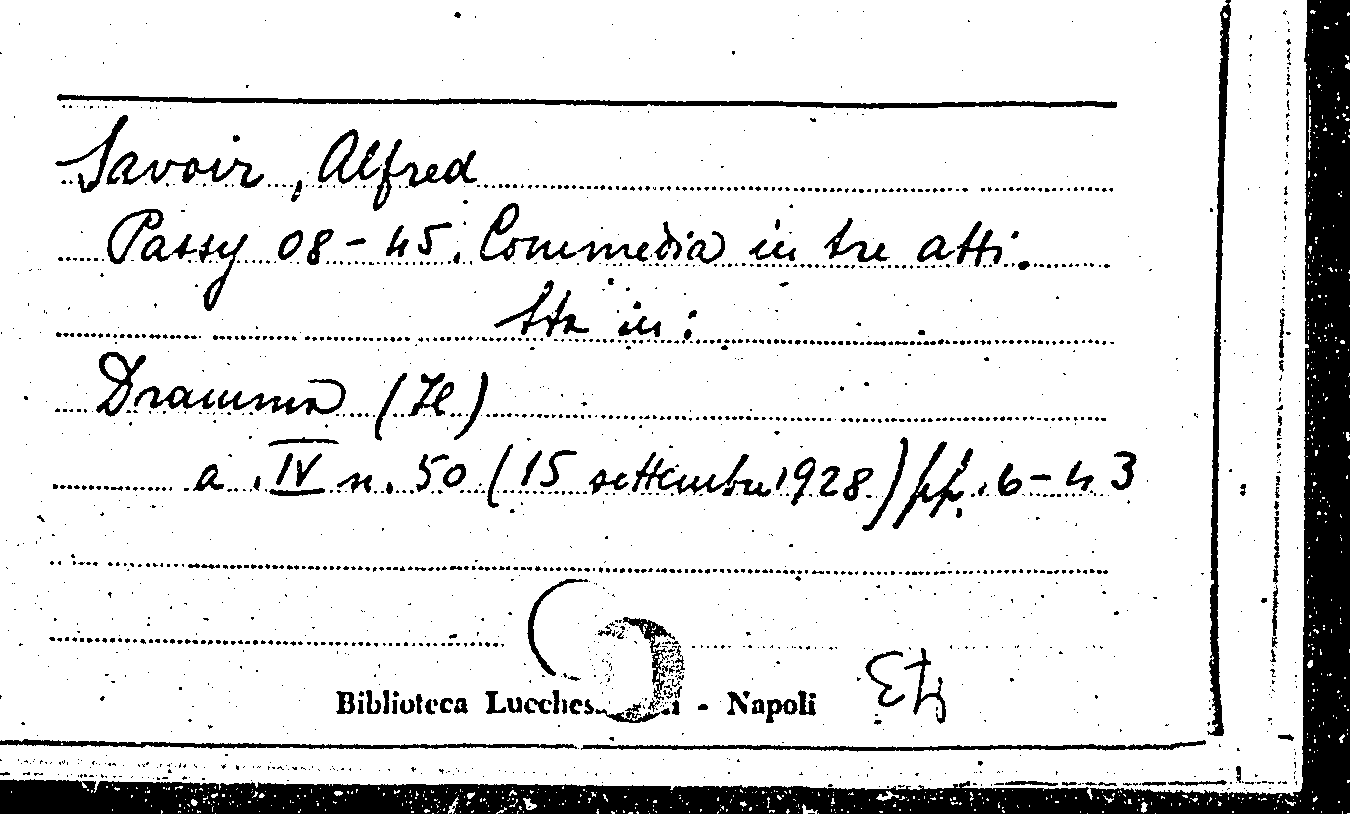 Savoir, Alfred
Passy 08-45. Commedia in tre atti.
Sta in:
Dramma (Il)
a. IV n. 50 (15 settembre 1928) pp. 6-43
Biblioteca - Napoli